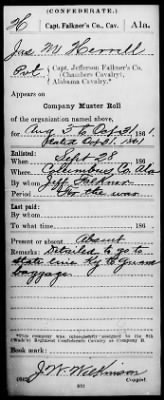 (CONFEDERATE.)
H Capt. Falkner's Co., Cav. Ala.
Jas. M. Herrell
Pvt, Capt. Jefferson Falkner's Co.
(Chambers Cavalry),
Alabama Cavalry.*
Appears on
Company Muster Roll
of the organization named above,
for Aug 3 to Oct 31, 1861.
dated Oct 31, 1861
Enlisted:
When Sept 28, 186
Where Columbus, Ga
By whom Jeff Falkner
Period For the war
Last paid:
By whom
To what time 186
Present or absent Absent
Remarks: Detailed to go to
state line Ky to guard
baggage
Book mark:
J. W. Wilkinson
(642) Copyist.